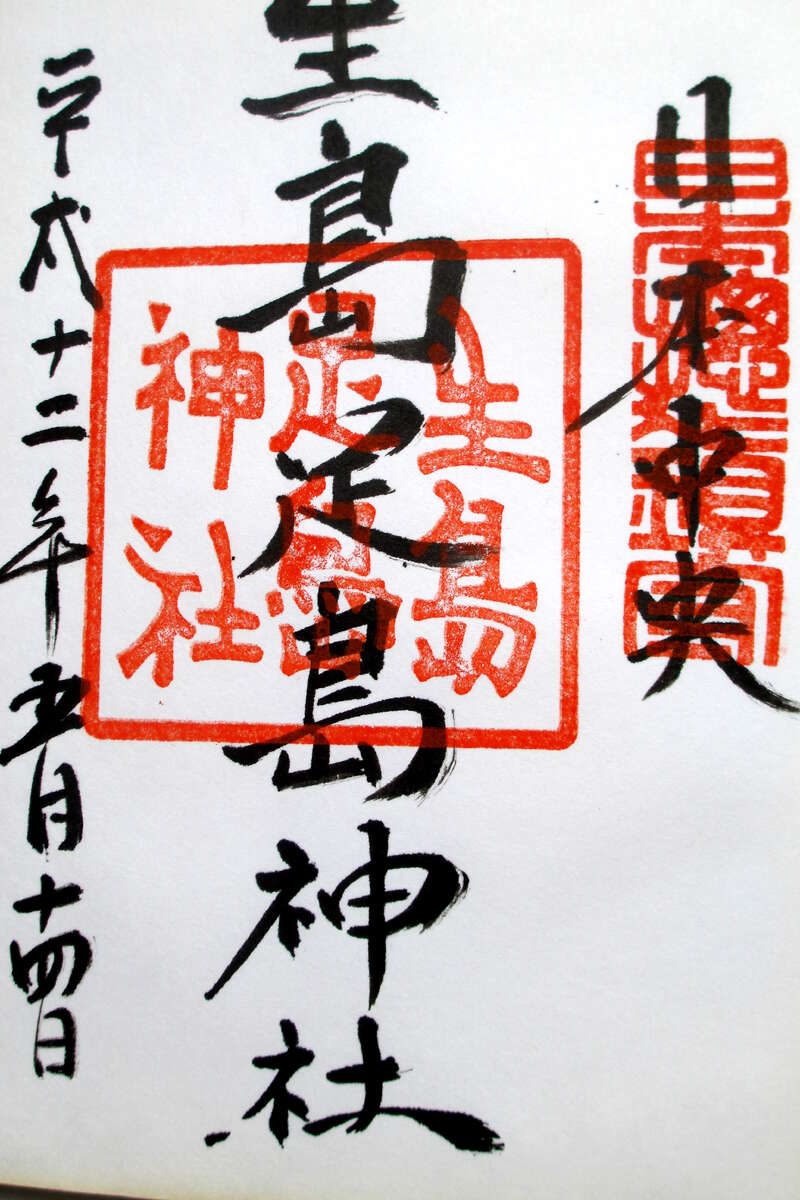 日本中央
生島足島神社
平成十二年五月十四日
生島
足島
神社